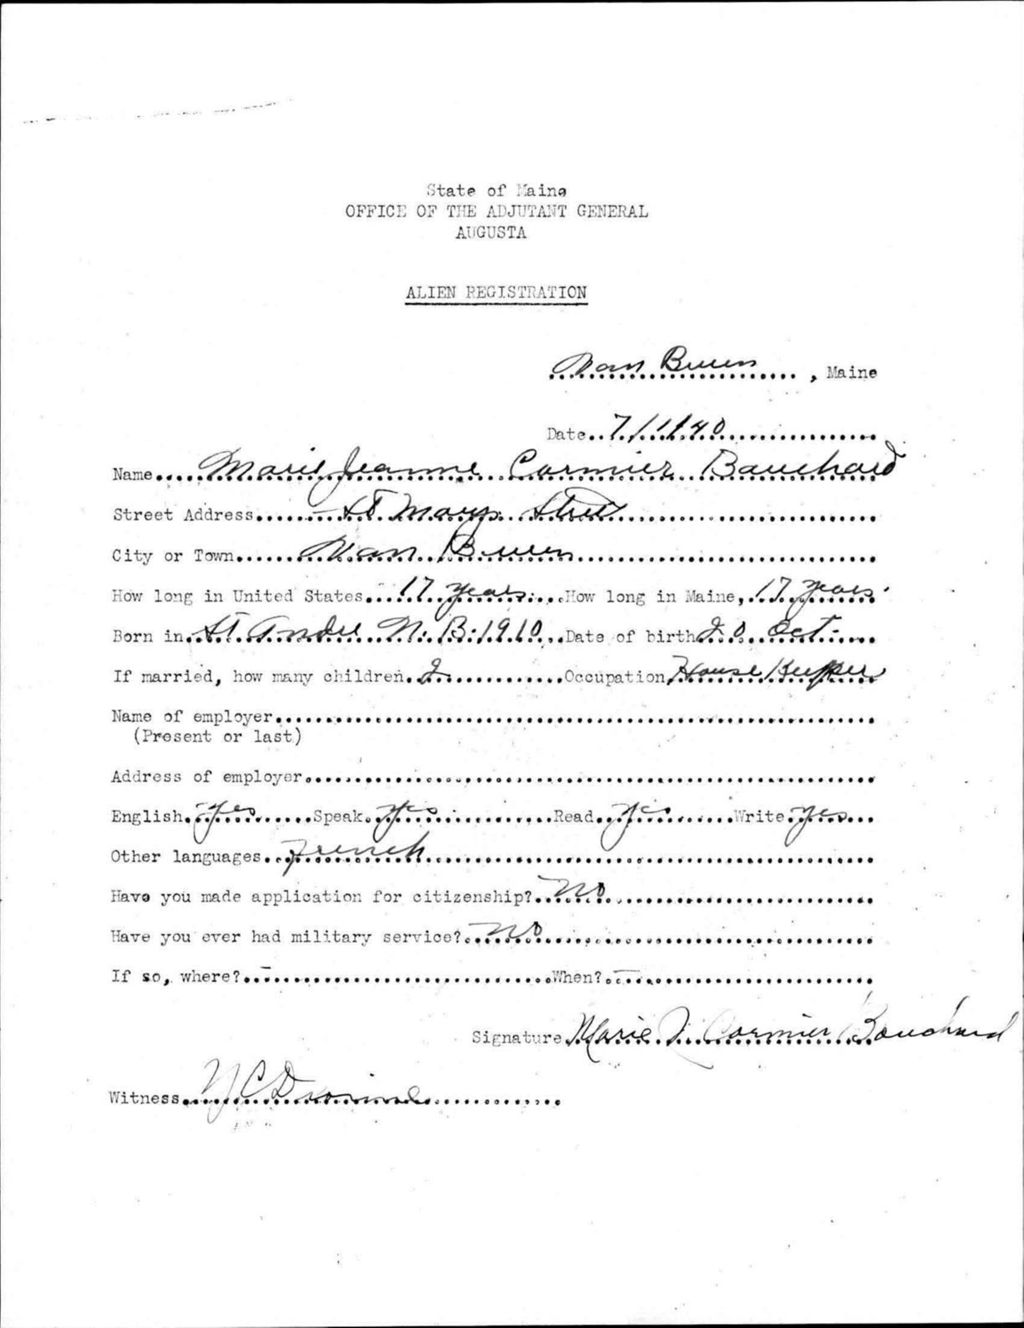 State of Maine
OFFICE OF THE ADJUTANT GENERAL
AUGUSTA
ALIEN REGISTRATION
Van Buren, Maine
Date 7/1/40
Name Marie Jeanne Cormier Bouchard
Street Address St Marys Street
City or Town Van Buren
How long in United States 17 years How long in Maine, 17 years
Born in St Andre N. B. 1910 Date of birth 20 Oct.
If married, how many children 2 Occupation House Keeper
Name of employer
(Present or last)
Address of employer
English Yes Speak Yes Read Yes Write Yes
Other languages French
Have you made application for citizenship? No
Have you ever had military service? No
If so, where? - When? -
Signature Marie J. Cormier Bouchard
Witness